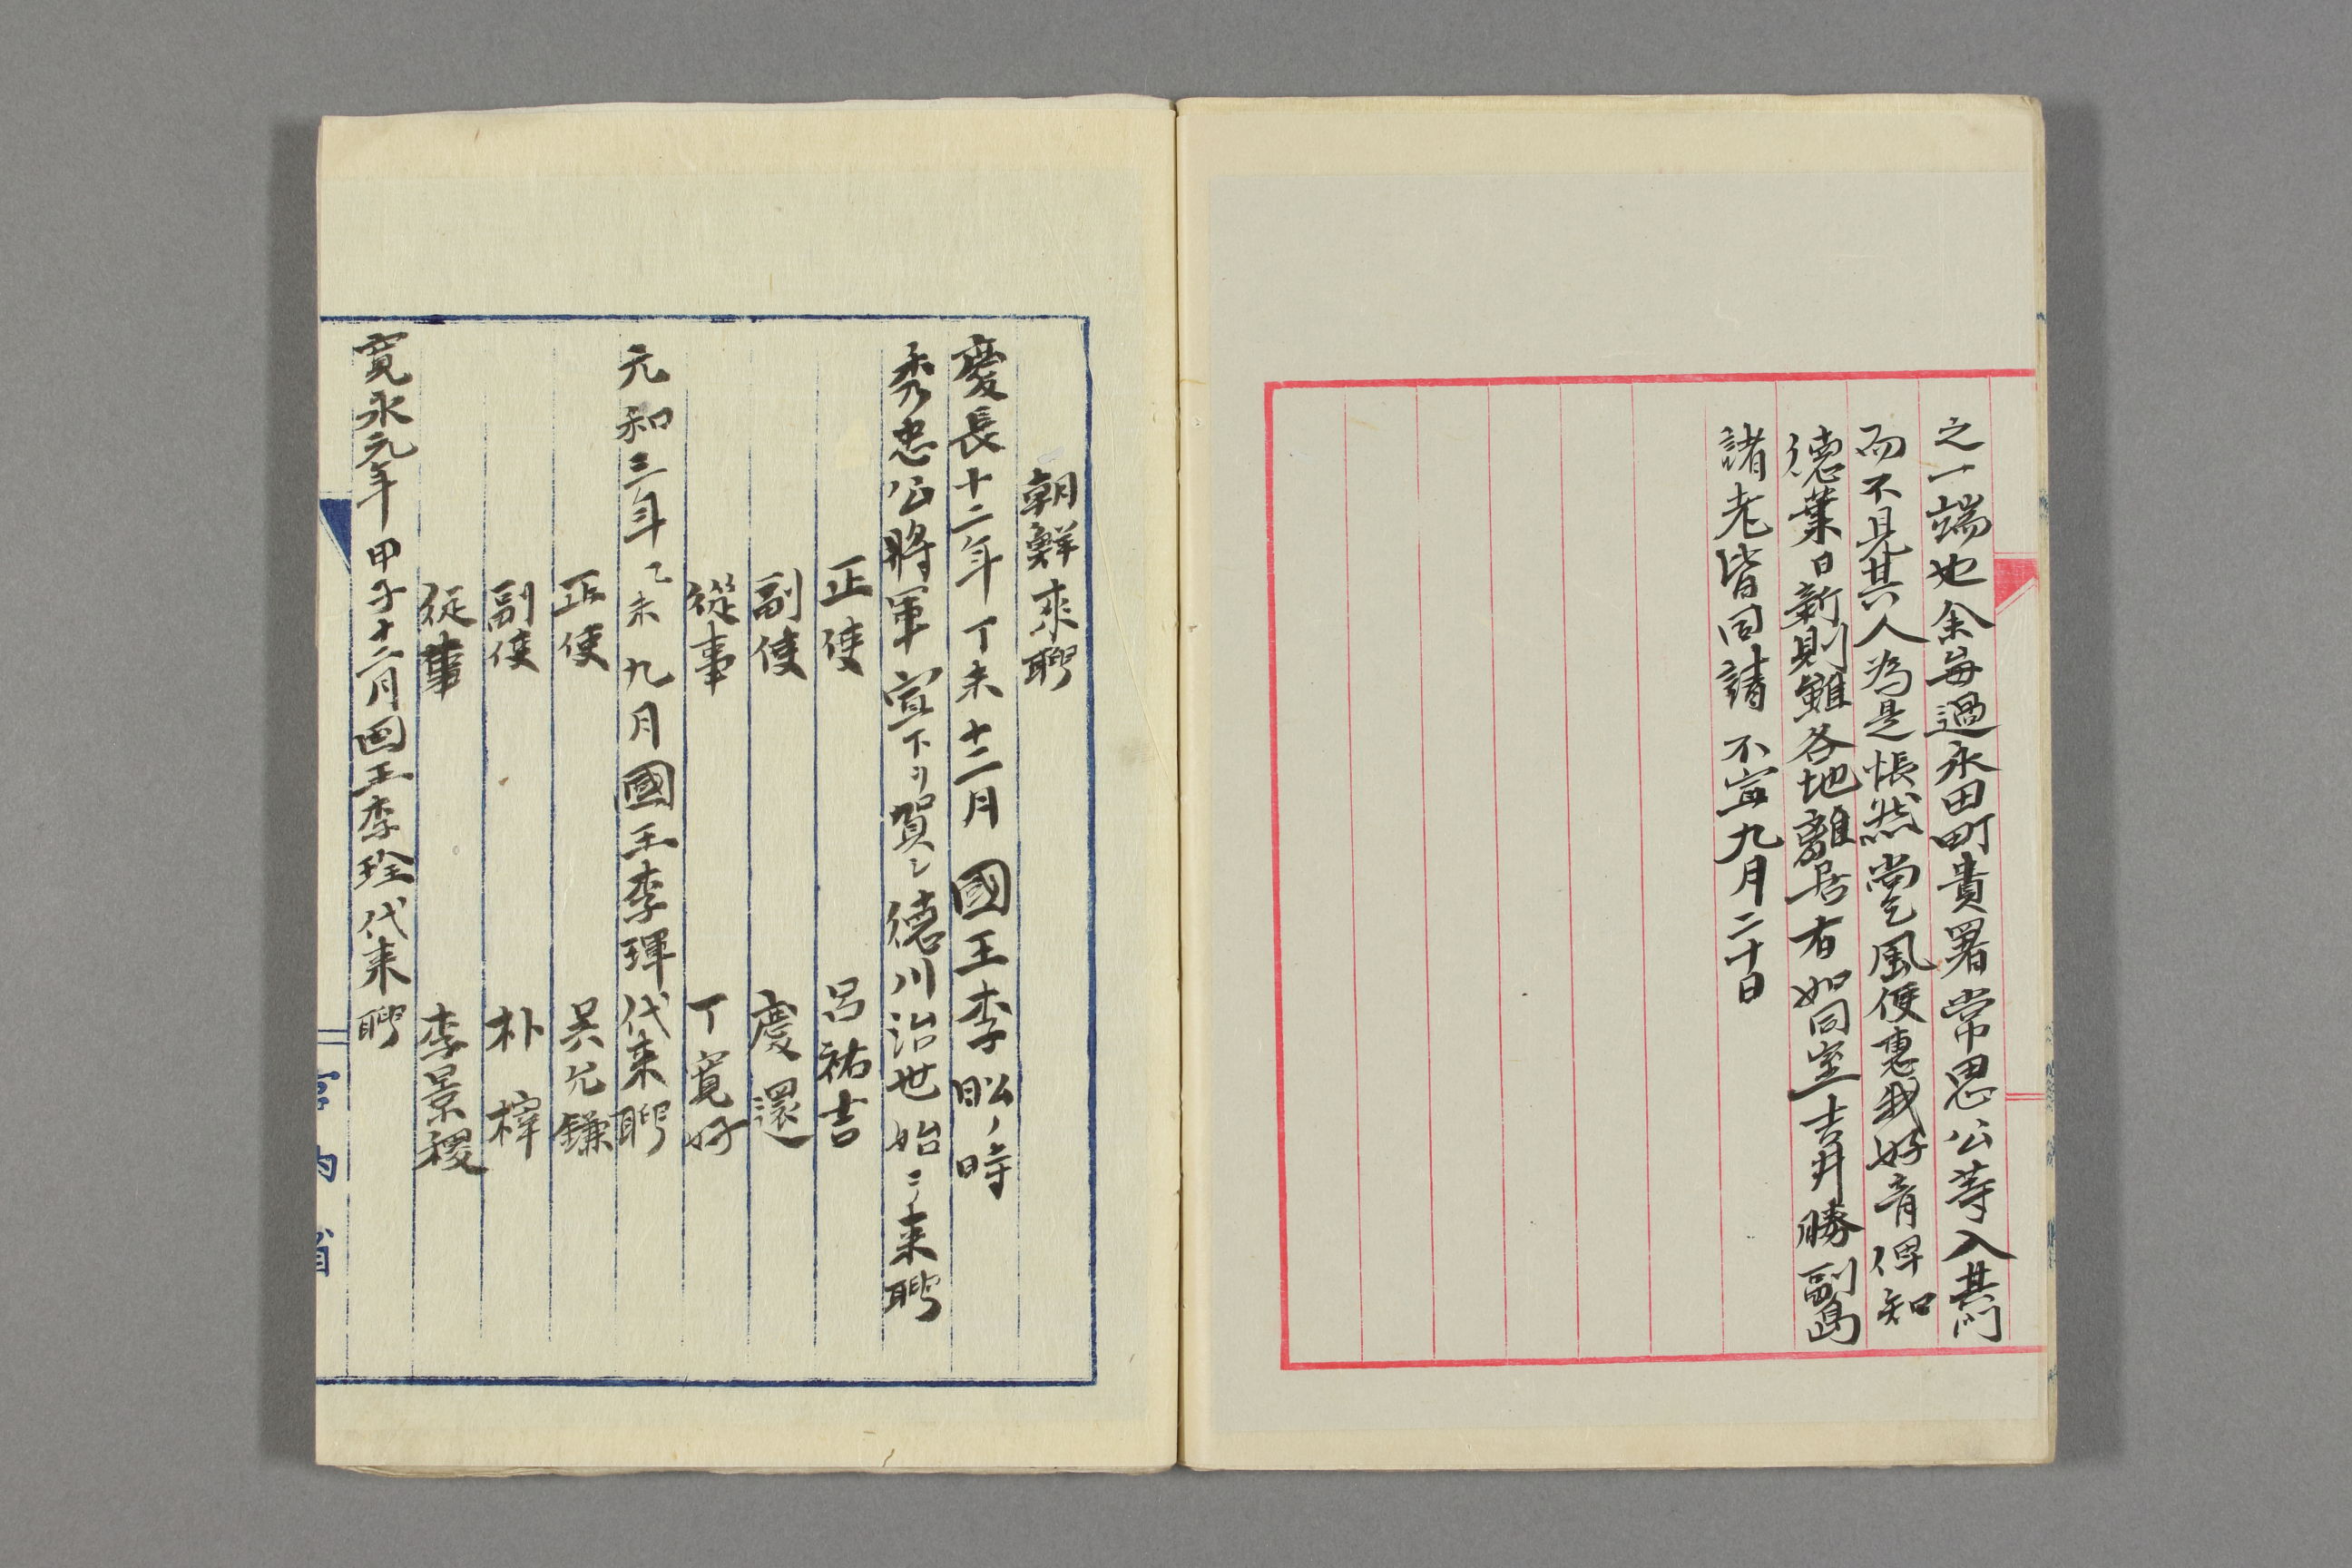 之一端也余每過永田町貴署常思公等入其門
而不見其人為是悵然尚乞風便惠我好音俾知
德業日新則雖各地離居有如同室吉井勝副島
諸老皆同請 不宣九月二十日
朝鮮来聘
慶長十二年丁未十二月國王李昖ノ時
秀忠公將軍宣下ヲ賀シ德川治世始ニ来聘
正使 呂祐吉
副使 慶 還
從事 丁寛好
元和三年乙未九月國王李琿代来聘
正使 吴允鎌
副使 朴 榟
従事 李景稷
寛永元年甲子十二月国王李琀代来聘
宮内省